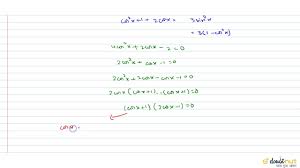 cos²x+1 + 2cosx = 3sin²x
= 3(1-cos²x)
4cos²x + 2cosx - 2 = 0
2cos²x + cosx - 1 = 0
2cos²x + 2cosx - cosx - 1 = 0
2cosx (cosx+1) -1(cosx+1) = 0
(cosx+1) (2cosx-1) = 0
cosx =
doubtnut